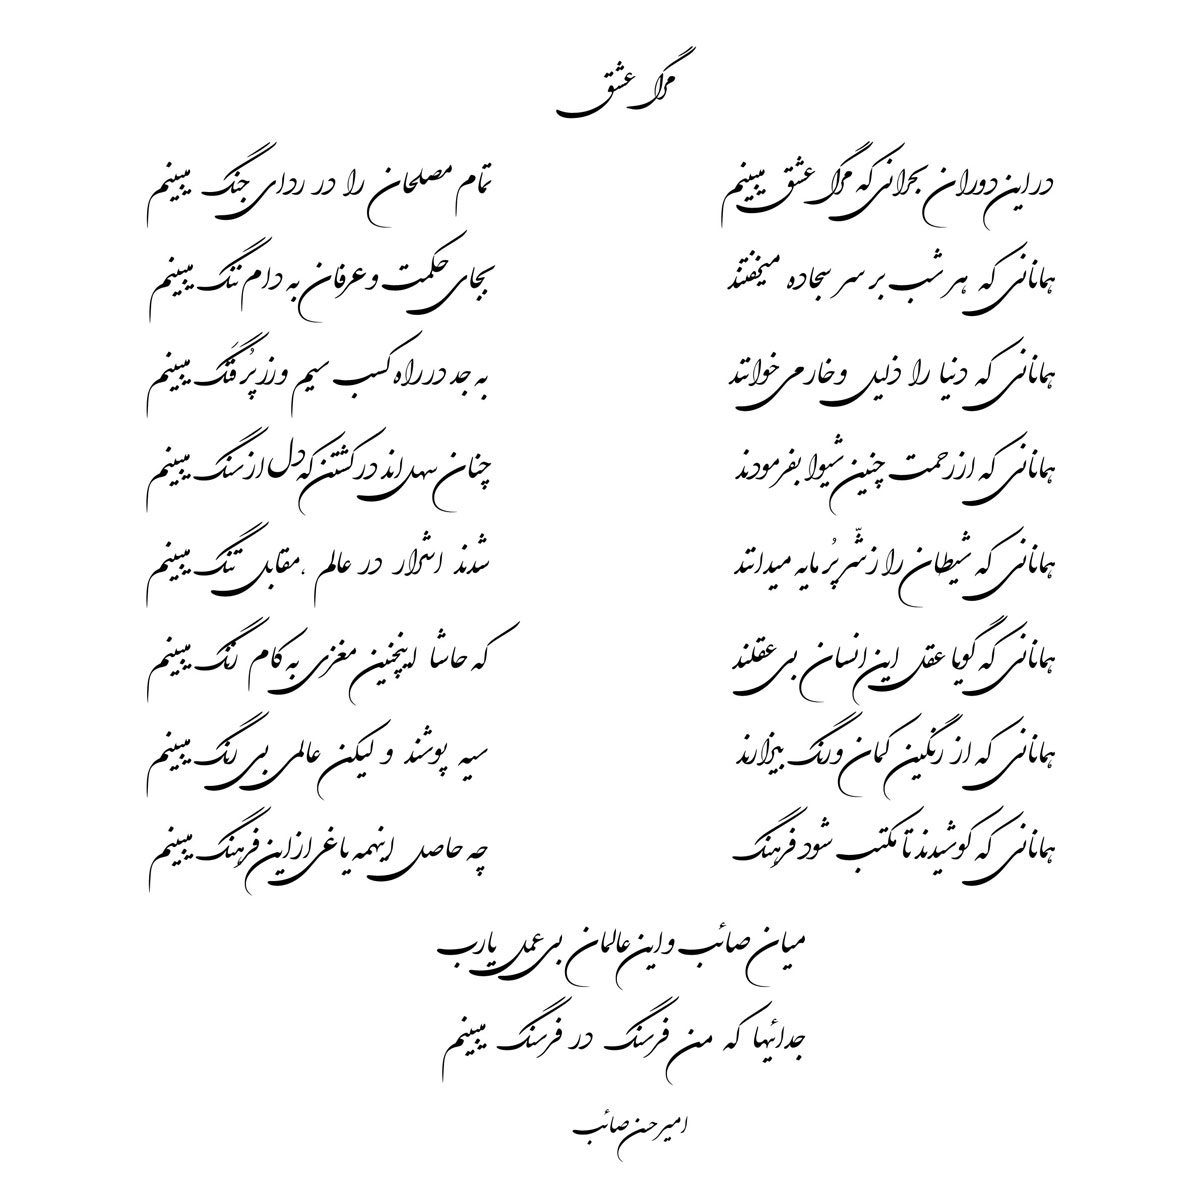 مرگ عشق
در این دوران بحرانی که مرگ عشق میبینم
تمام مصلحان را در ردای جنگ میبینم
همانانی که هر شب بر سر سجاده میخفتند
بجای حکمت و عرفان به دام ننگ میبینم
همانانی که دنیا را ذلیل و خار می خوانند
به جد در راه کسب سیم و زر پُر فَنگ میبینم
همانانی که از رحمت چنین شیوا بفرمودند
چنان سهل اند در کشتن که دل از سنگ میبینم
همانانی که شیطان را ز شّر پُر مایه میدانند
شدند اشرار در عالم ، مقابل تنگ میبینم
همانانی که گویا عقل این انسان بی عقلند
که حاشا اینچنین مغزی به کام لنگ میبینم
همانانی که از رنگین کمان و رنگ بیزارند
سیه پوشند و لیکن عالمی بی رنگ میبینم
همانانی که کوشیدند تا مکتب شود فرهنگ
چه حاصل اینهمه یاغی از این فرهنگ میبینم
میان صائب و این عالمان بی عمل یارب
جدائیها که من فرسنگ در فرسنگ میبینم
امیرحسن صائب